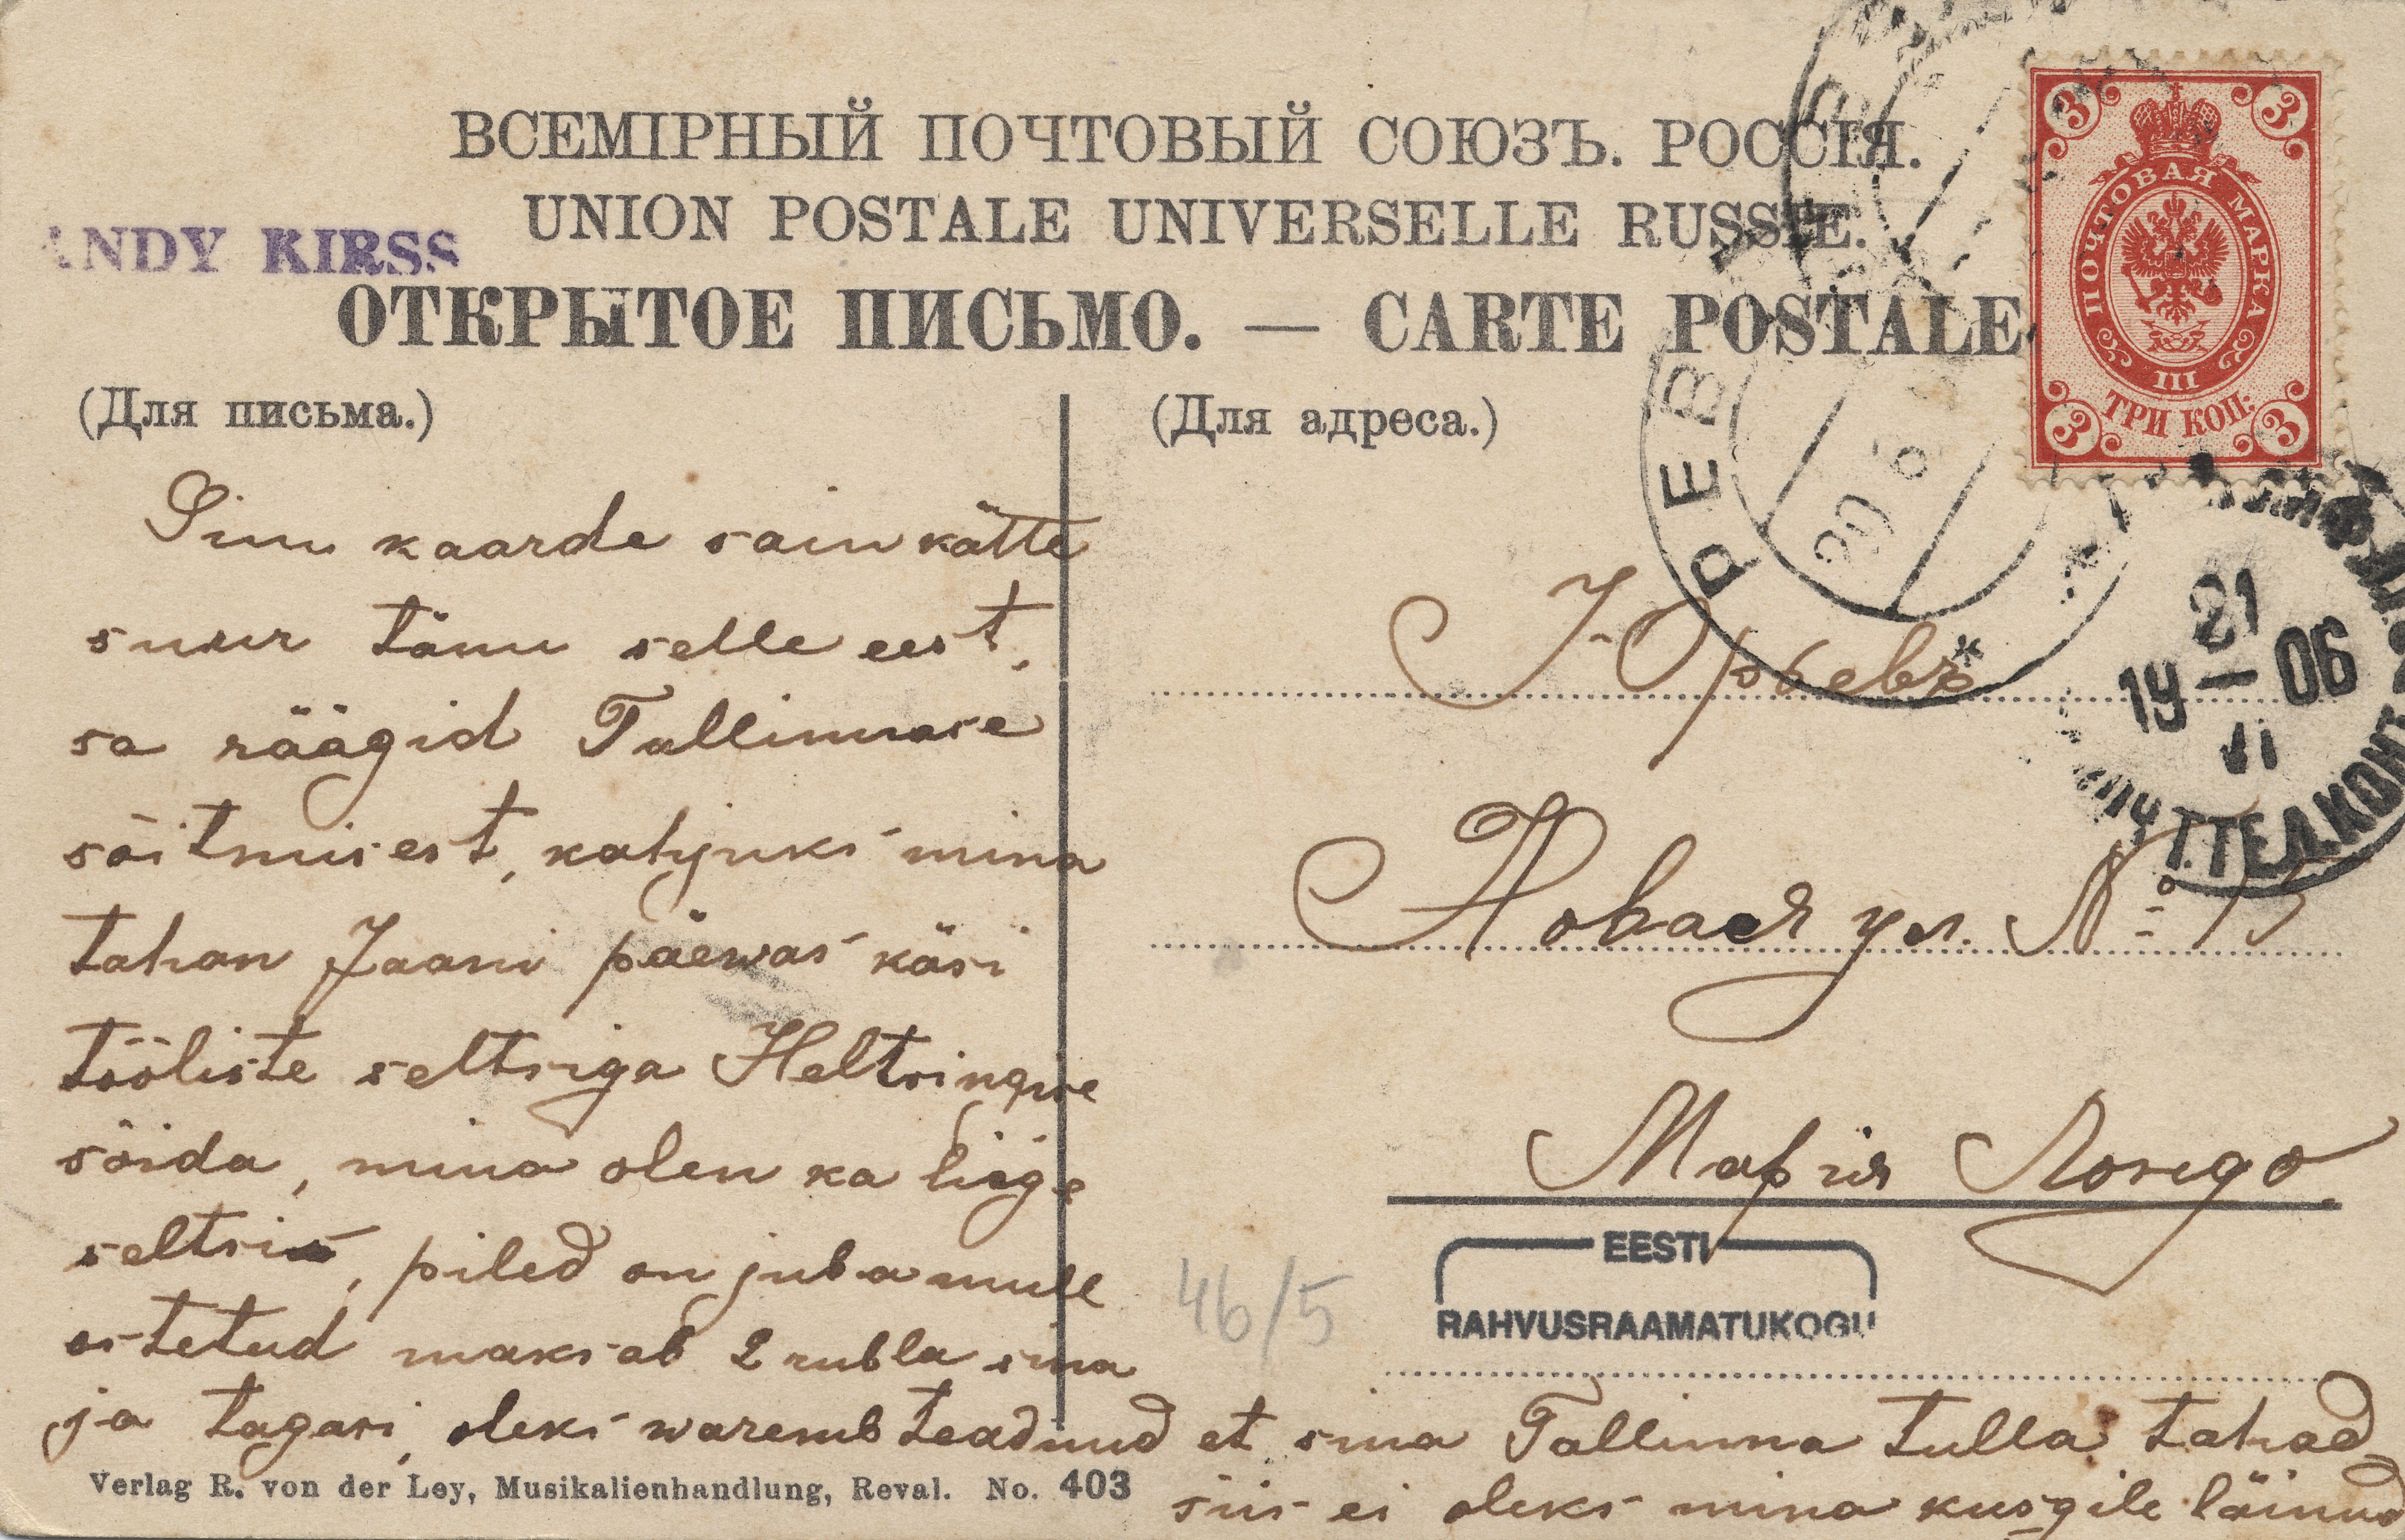 ВСЕМІРНЫЙ ПОЧТОВЫЙ СОЮЗЪ. РОССІЯ.
UNION POSTALE UNIVERSELLE RUSSIE.
ANDY KIRSS
ОТКРЫТОЕ ПИСЬМО. — CARTE POSTALE
ПОЧТОВАЯ МАРКА
III
ТРИ КОП.
3 3 3 3
(Для письма.)
(Для адреса.)
РЕВ
21
19 — 06
11
Т.ТЕЛ.КОНТ
Sinu kaarde sain kätte
suur tänu selle eest,
sa räägid Tallinnase
sõitmisest, kahjuks mina
tahan Jaani päewas käsi
tööliste seltsiga Heltsingise
sõida, mina olen ka liige
seltsis, piled on juba mull
ostetud maksab 2 rubla sina
ja tagasi, oleks waremb teadnud et sina Tallinna tulla tahad
siis ei oleks mina kusgile läinud
Юрьевъ
Новая ул. № 15
Марія
EESTI
RAHVUSRAAMATUKOGU
46/5
Verlag R. von der Ley, Musikalienhandlung, Reval. No. 403